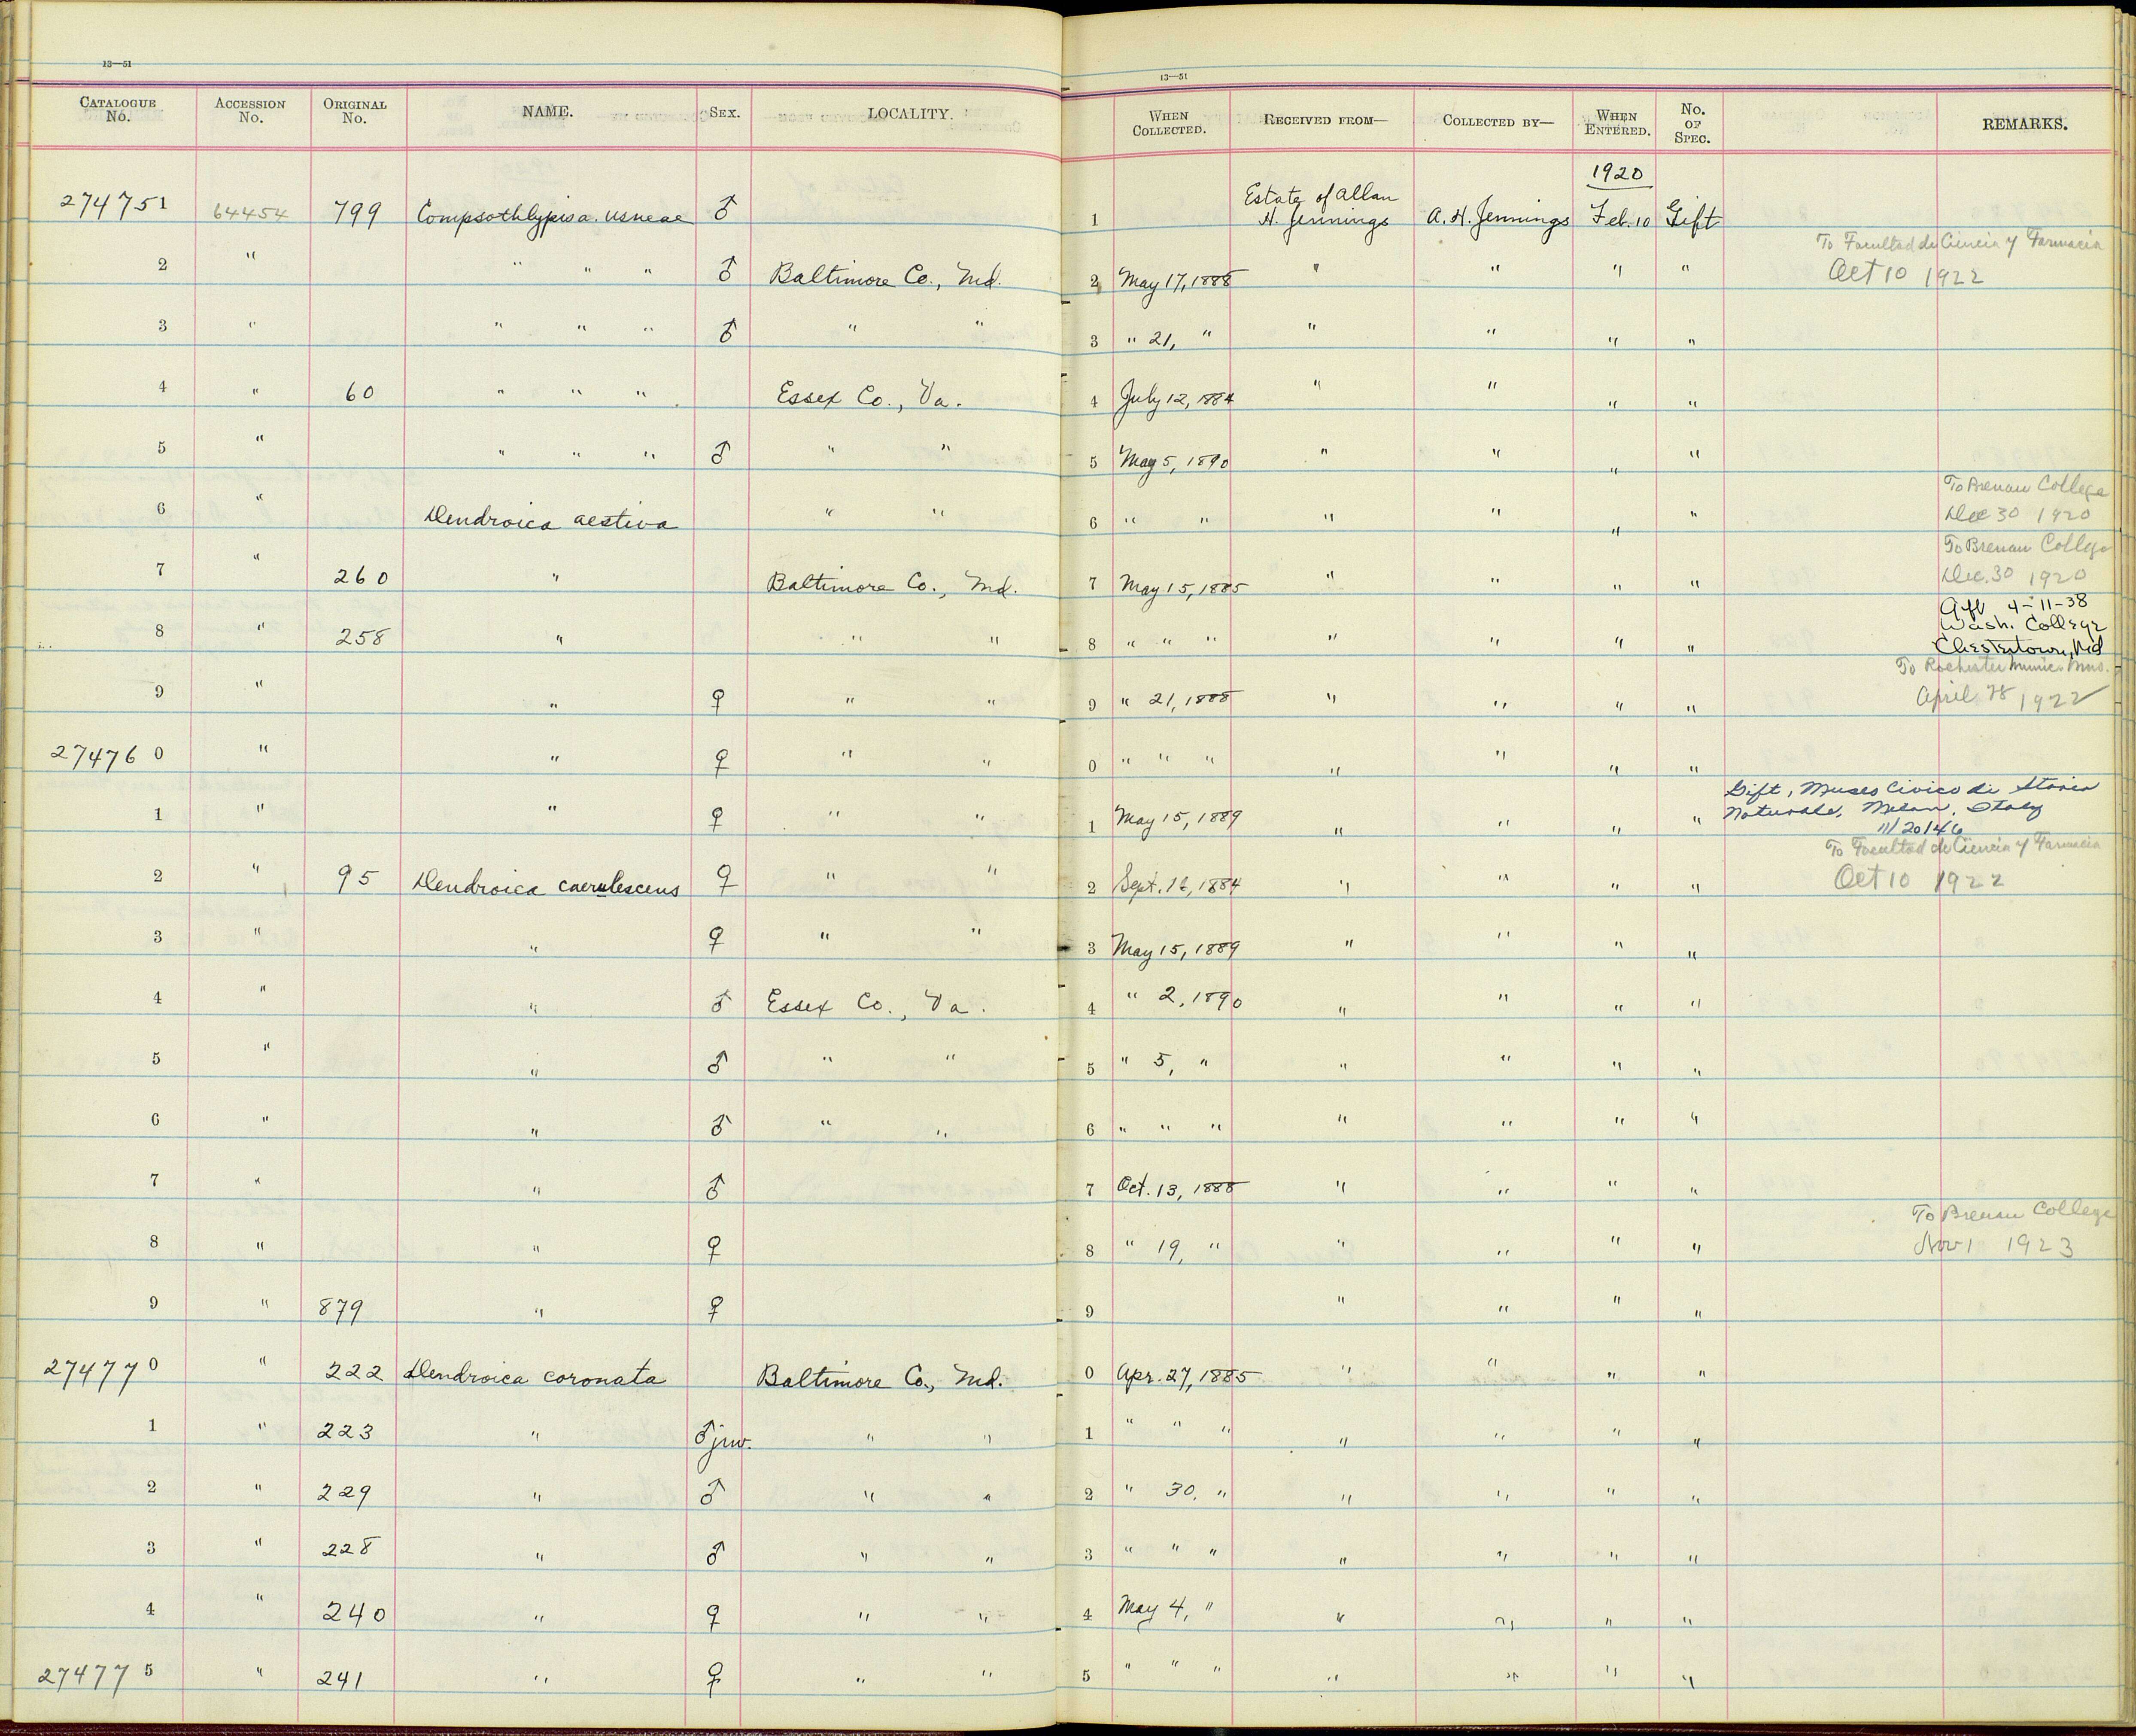 13—51
13—51
CATALOGUE No. ACCESSION No. ORIGINAL No. NAME. SEX. LOCALITY. WHEN COLLECTED. RECEIVED FROM— COLLECTED BY— WHEN ENTERED. No. OF SPEC. REMARKS.
1920
274751 64454 799 Compsothlypis a. usneae ♂ 1 Estate of Allan H. Jennings A. H. Jennings Feb. 10 Gift
To Facultad de Ciencia y Farmacia
2 " " " " ♂ Baltimore Co., Md. 2 May 17, 1888 " " " " Oct 10 1922
3 " " " " ♂ " " 3 " 21, " " " " "
4 " 60 " " " Essex Co., Va. 4 July 12, 1884 " " " "
5 " " " " ♂ " " 5 May 5, 1890 " " " "
6 " Dendroica aestiva " " 6 " " " " " " To Brenau College Dec 30 1920
7 " 260 " Baltimore Co., Md. 7 May 15, 1885 " " " " To Brenau College Dec. 30 1920
8 " 258 " " " 8 " " " " " " " Gift 4-11-38 Wash. College Chestertown, Md
9 " " ♀ " " 9 " 21, 1888 " " " " To Rochester Munic. Mus. April 28 1922
274760 " " ♀ " " 0 " " " " " " "
1 " " ♀ " " 1 May 15, 1889 " " " " Gift, Museo Civico di Storia Naturale, Milan, Italy 11/20/46
To Facultad de Ciencia y Farmacia
2 " 95 Dendroica caerulescens ♀ " " 2 Sept. 16, 1884 " " " " Oct 10 1922
3 " " ♀ " " 3 May 15, 1889 " " " "
4 " " ♂ Essex Co., Va. 4 " 2, 1890 " " " "
5 " " ♂ " " 5 " 5, " " " " "
6 " " ♂ " " 6 " " " " " " "
7 " " ♂ 7 Oct. 13, 1888 " " " "
8 " " ♀ 8 " 19, " " " " " To Brenau College Nov 1 1923
9 " 879 " ♀ 9 " " " "
274770 " 222 Dendroica coronata Baltimore Co., Md. 0 Apr. 27, 1885 " " " "
1 " 223 " ♂ juv. " " 1 " " " " " " "
2 " 229 " ♂ " " 2 " 30, " " " " "
3 " 228 " ♂ " " 3 " " " " " " "
4 " 240 " ♀ " " 4 May 4, " " " " "
274775 " 241 " ♀ " " 5 " " " " " " "